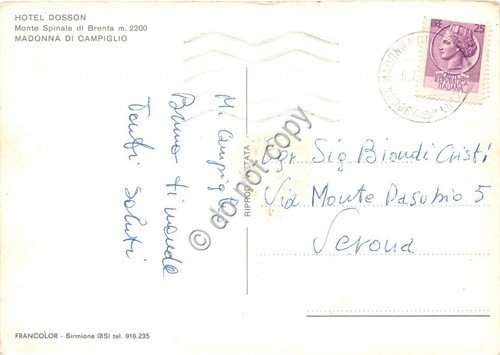 HOTEL DOSSON
Monte Spinale di Brenta m. 2200
MADONNA DI CAMPIGLIO
LIRE 25
M. Campiglio
Bruno ti manda
Tanti saluti
RIPROD. VIETATA
Egr. Sig Biondi Cristi
Via Monte Pasubio 5
Verona
do not copy
FRANCOLOR - Sirmione (BS) tel. 916.235